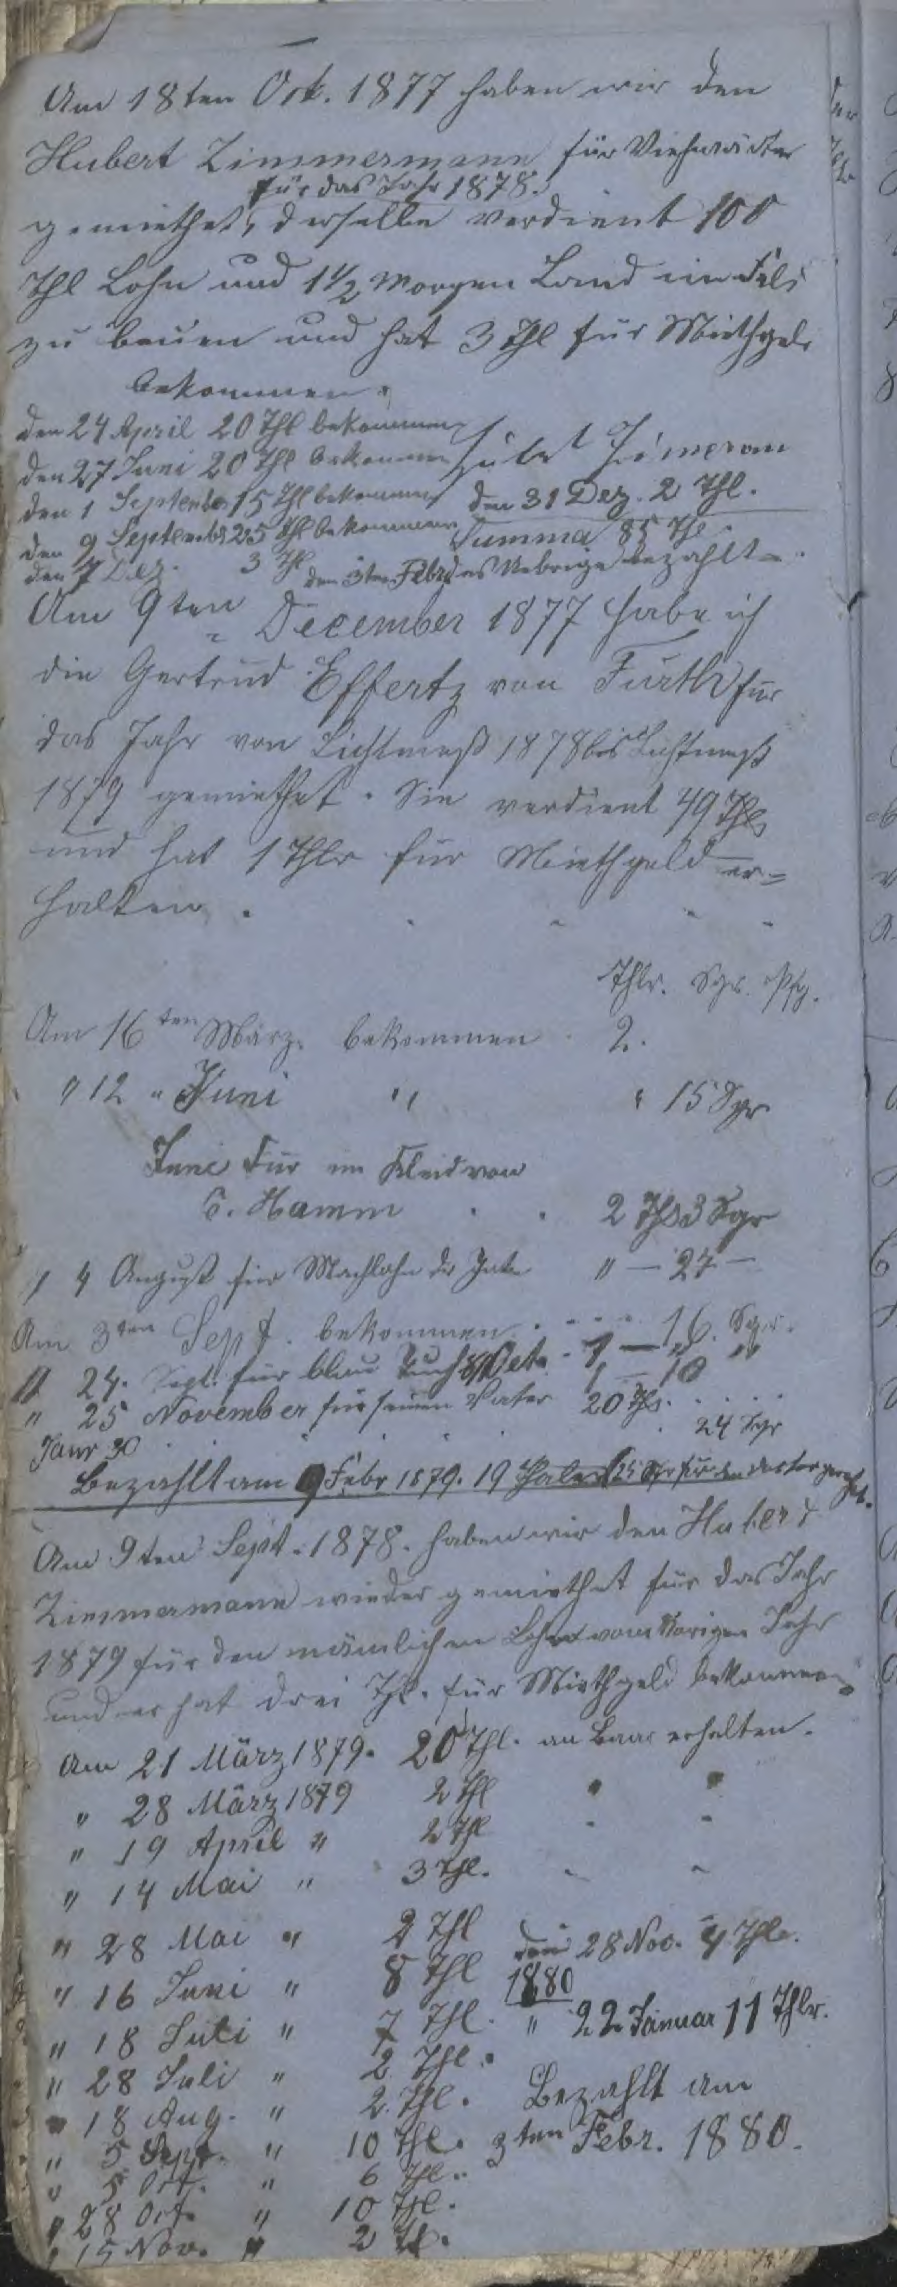 Am 18ten Okt. 1877 haben wir den
Hubert Zimmermann für Viehwärter
für das Jahr 1878.
gemiethet, derselbe verdient 100
Thl Lohn und 1 1/2 Morgen Land im Feld
zu bauen und hat 3 Thl für Miethgeld
bekommen.
den 24 April 20 Thl bekommen
den 27 Juni 20 Thl bekommen
den 1 September 15 Thl bekommen
den 31 Dez. 2 Thl.
den 9 September 25 Thl bekommen
Summa 85 Thl.
den 7 Dez. 3 Thl
den 3ten Febr das Uebrige bezahlt
Am 9ten December 1877 habe ich
die Gertrud Effertz von Fürth für
das Jahr von Lichtmeß 1878 bis Lichtmeß
1879 gemiethet. Sie verdient 49 Thl
und hat 1 Thlr für Miethgeld er=
halten.
Thlr. Sgr. Pfg.
Am 16ten März. bekommen 2.
" 12 " Juni " " 15 Sgr
Juni Für ein Kleid von
C. Hamm . . 2 Thl 3 Sgr
" 4 August für Machlohn der " — 27 —
Am 3ten Sept. bekommen . . . . 16. Sgr.
" 24. Sept. für blau Tuch 1 — 10 "
" 25 November für seinen Vater 20 Thl. . . . .
Janr 30 . . 24 Sgr
Bezahlt am 9 Febr 1879. 19 Thaler 25 Sgr für den
Am 9ten Sept. 1878. haben wir den Hubert
Zimmermann wieder gemiethet für das Jahr
1879 für den nämlichen Lohn vom vorigen Jahr
und er hat drei Thl. für Miethgeld bekommen
Am 21 März 1879. 20 Thl. an Baar erhalten.
" 28 März 1879 2 Thl " "
" 19 April " 2 Thl " "
" 14 Mai " 3 Thl. " "
" 28 Mai " 2 Thl
den 28 Nov. 4 Thlr.
" 16 Juni " 8 Thl
1880
" 18 Juli " 7 Thl.
" 22 Januar 11 Thlr.
" 28 Juli " 2 Thl.
" 18 Aug. " 2. Thl.
Bezahlt am
" 5 Sept. " 10 Thl.
3ten Febr. 1880.
" 5 Oct. " 6 Thl.
" 28 Oct. " 10 Thl.
" 15 Nov. " 2 Thl.